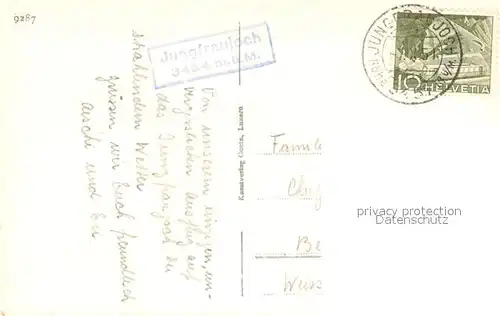 9287
Jungfraujoch
3454 m.ü.M.
JUNGFRAUJOCH
10 HELVETIA
Von unserem einzigen, un-
vergesslichen Ausflug auf
das Jungfraujoch bei
strahlendem Wetter
grüssen wir Euch freundlich
und
Kunstverlag Goetz, Luzern
Famil
Be
privacy protection
Datenschutz